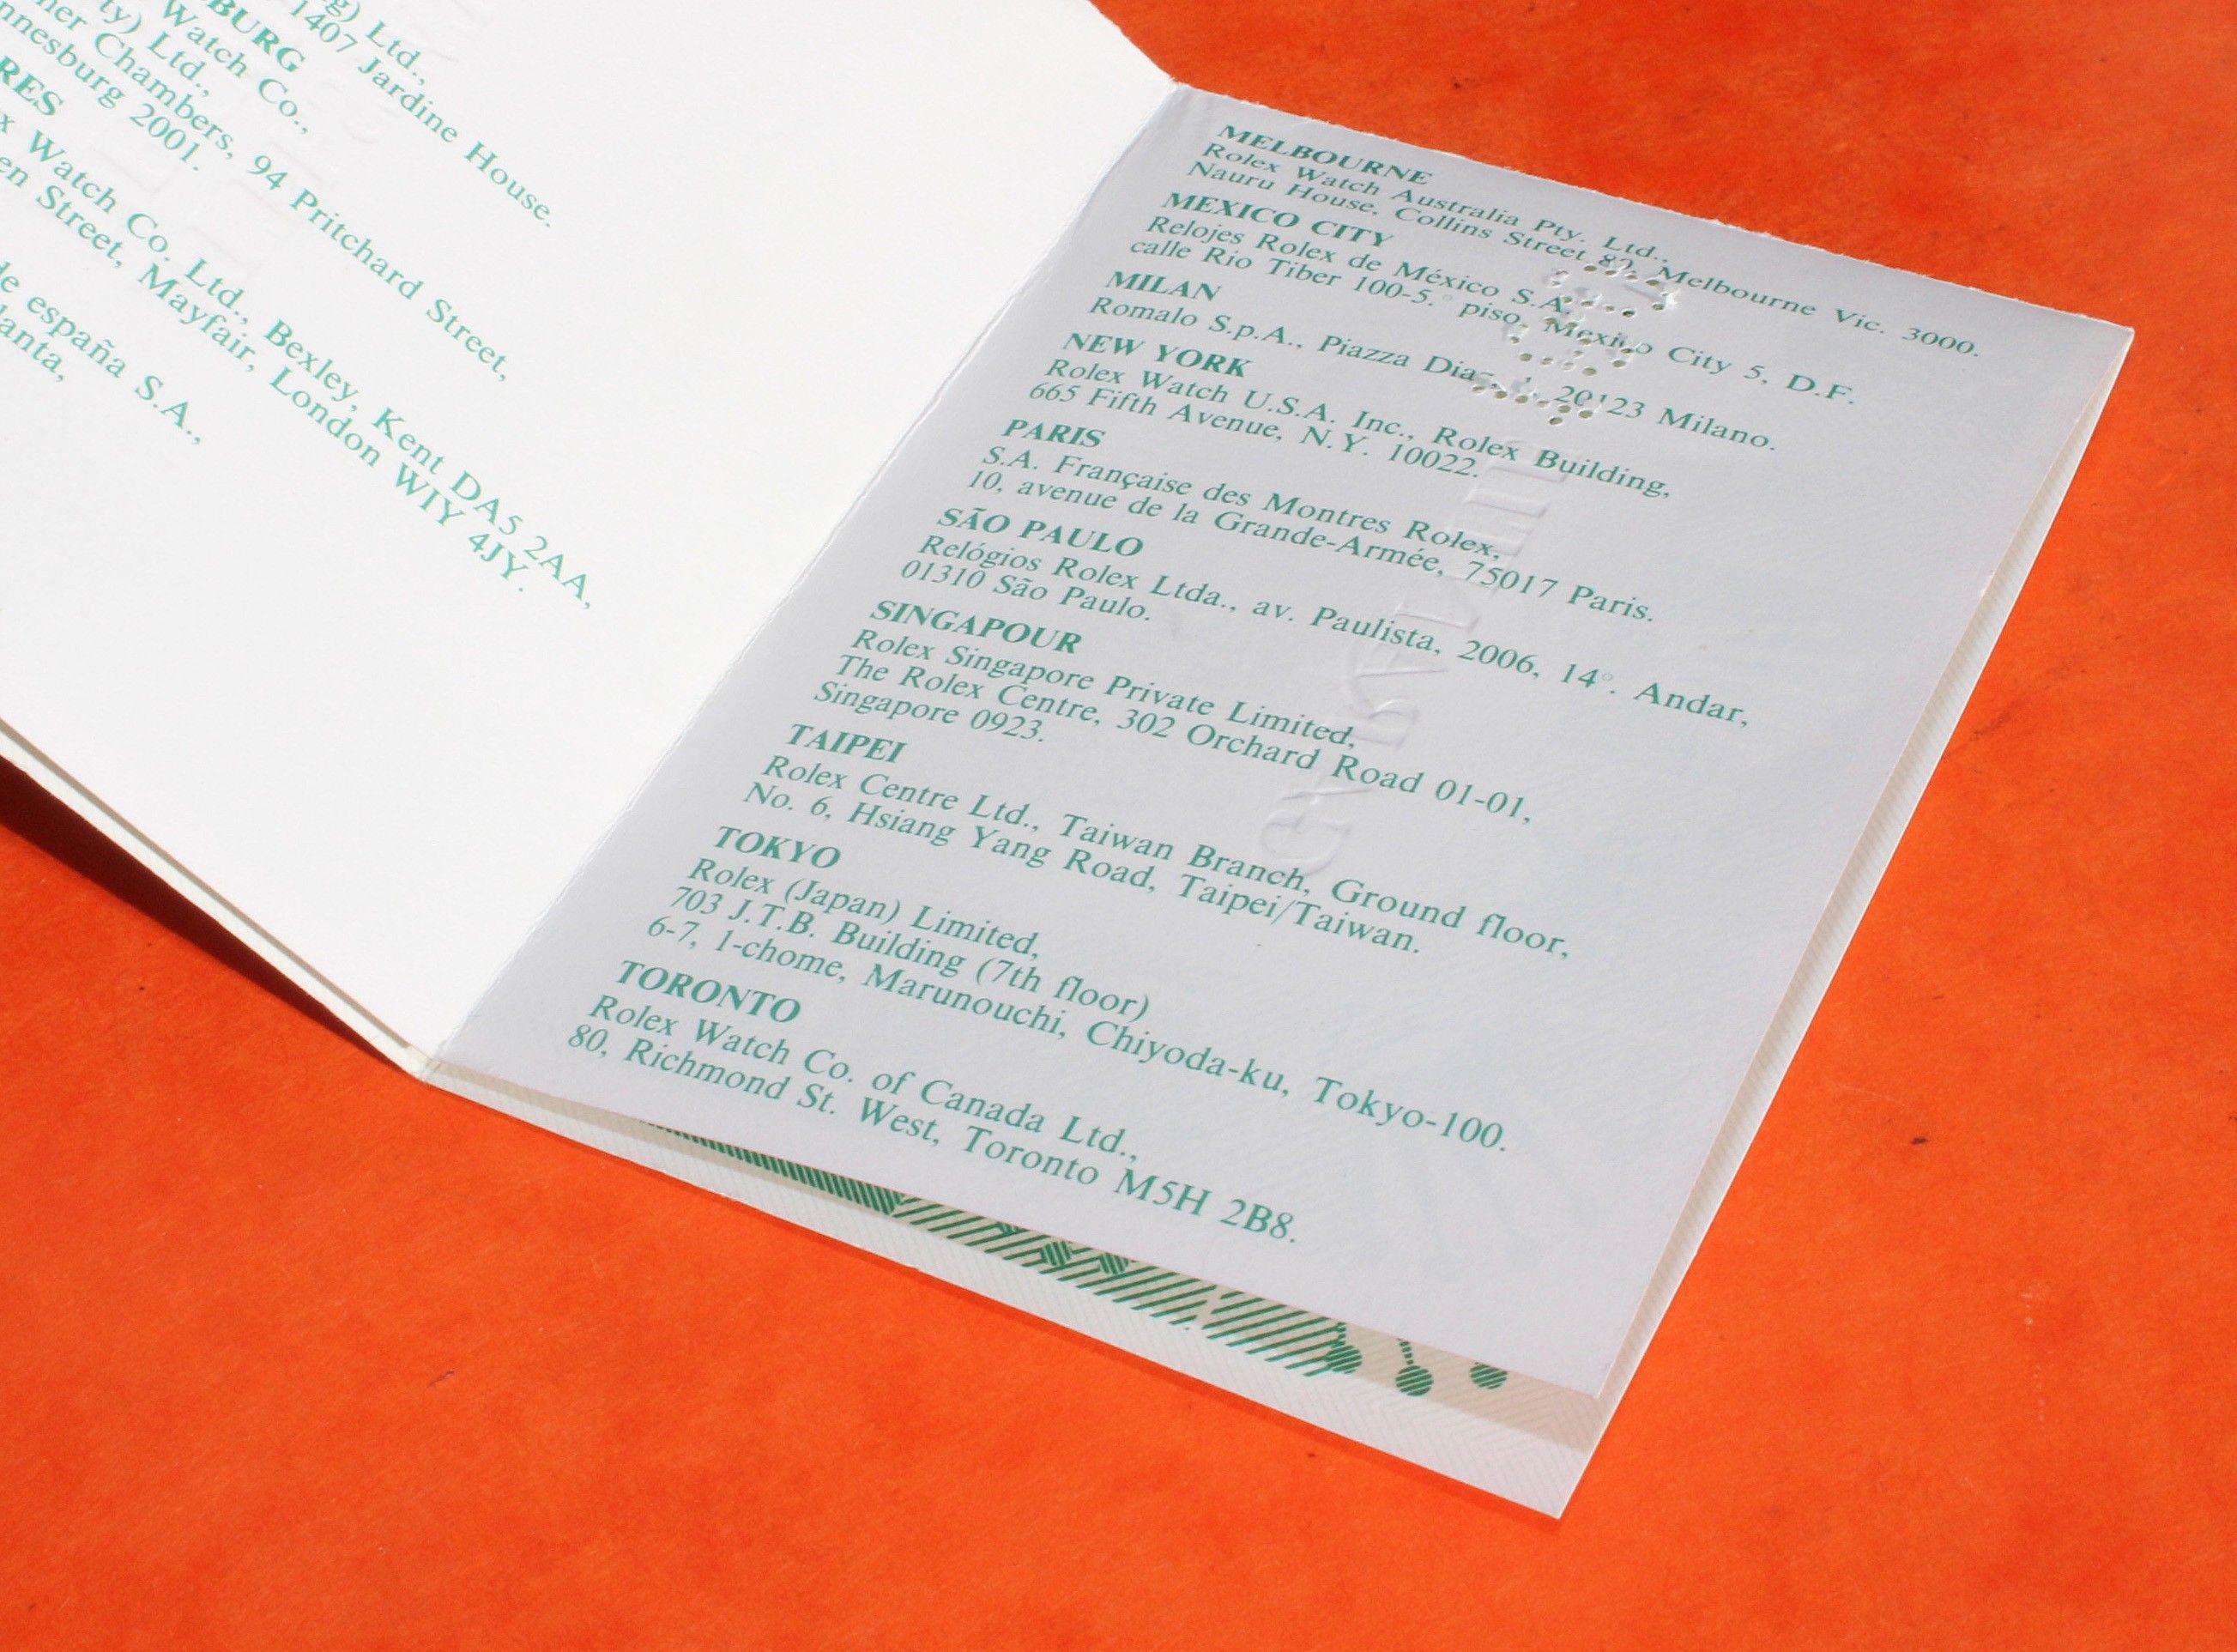 g) Ltd.,
1407 Jardine House.
BURG
Watch Co.,
ty) Ltd.,
Chambers, 94 Pritchard Street,
nnesburg 2001.
RES
x Watch Co. Ltd., Bexley, Kent DA5 2AA,
en Street, Mayfair, London W1Y 4JY.
de españa S.A.,
lanta,
MELBOURNE
Rolex Watch Australia Pty. Ltd.,
Nauru House, Collins Street Melbourne Vic. 3000.
MEXICO CITY
Relojes Rolex de México S.A.,
calle Rio Tiber 100-5.° piso, Mexico City 5, D.F.
MILAN
Romalo S.p.A., Piazza Diaz, 1, 20123 Milano.
NEW YORK
Rolex Watch U.S.A. Inc., Rolex Building,
665 Fifth Avenue, N.Y. 10022.
PARIS
S.A. Française des Montres Rolex,
10, avenue de la Grande-Armée, 75017 Paris.
SÃO PAULO
Relógios Rolex Ltda., av. Paulista, 2006, 14°. Andar,
01310 São Paulo.
SINGAPOUR
Rolex Singapore Private Limited,
The Rolex Centre, 302 Orchard Road 01-01,
Singapore 0923.
TAIPEI
Rolex Centre Ltd., Taiwan Branch, Ground floor,
No. 6, Hsiang Yang Road, Taipei/Taiwan.
TOKYO
Rolex (Japan) Limited,
703 J.T.B. Building (7th floor)
6-7, 1-chome, Marunouchi, Chiyoda-ku, Tokyo-100.
TORONTO
Rolex Watch Co. of Canada Ltd.,
80, Richmond St. West, Toronto M5H 2B8.